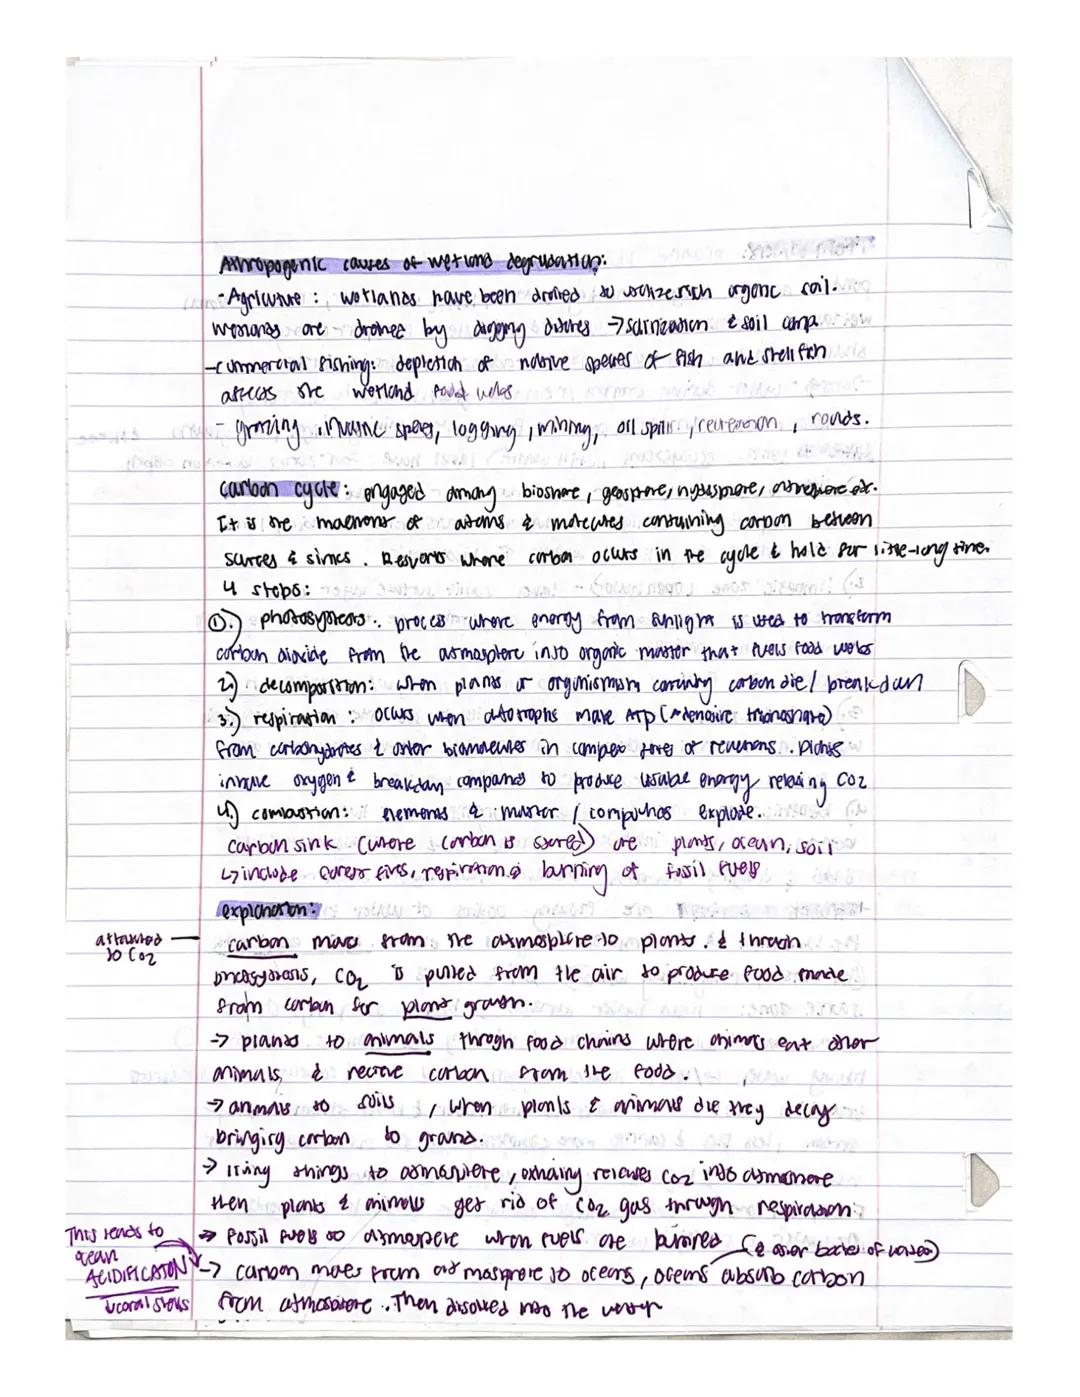 Anthropogenic causes of wetland degradation:
- Agriculture : wetlands have been drained to utilize rich organic soil.
wetlands are drained by digging ditches → salinization & soil comp
- commercial fishing: depletion of native species of fish and shellfish
affects the wetland food webs
- grazing, invasive species, logging, mining, oil spills, recreation, roads.
carbon cycle: engaged among biosphere, geosphere, hydrosphere, atmosphere etc.
It is the movement of atoms & molecules containing carbon between
sources & sinks. where carbon occurs in the cycle & hold for little-long time.
4 steps:
1.) photosynthesis: process where energy from sunlight is used to transform
carbon dioxide from the atmosphere into organic matter that fuels food webs
2.) decomposition: when plants or organisms carrying carbon die/ breakdown
3.) respiration : occurs when autotrophs make ATP (Adenosine triphosphate)
from carbohydrates & other biomolecules in complex of reactions. plants
inhale oxygen & breakdown compounds to produce usable energy releasing CO2
4.) combustion: elements & matter / compounds explode.
carbon sink (where carbon is stored) are plants, ocean, soil
↳ include forest fires, respiration & burning of fossil fuels
explanation:
attached to CO2
carbon moves from the atmosphere to plants. & through
photosynthesis, CO2 is pulled from the air to produce food made
from carbon for plant growth.
→ plants to animals through food chains where animals eat other
animals, & receive carbon from the food.
→ animals to soils, when plants & animals die they decay
bringing carbon to ground.
→ living things to atmosphere, exhaling releases CO2 into atmosphere
then plants & animals get rid of CO2 gas through respiration.
→ fossil fuels to atmosphere when fuels are burned
(& other bodies of water)
→ carbon moves from atmosphere to oceans, oceans absorb carbon
from atmosphere. Then dissolved into the water
This leads to
ocean
ACIDIFICATION
↳ coral